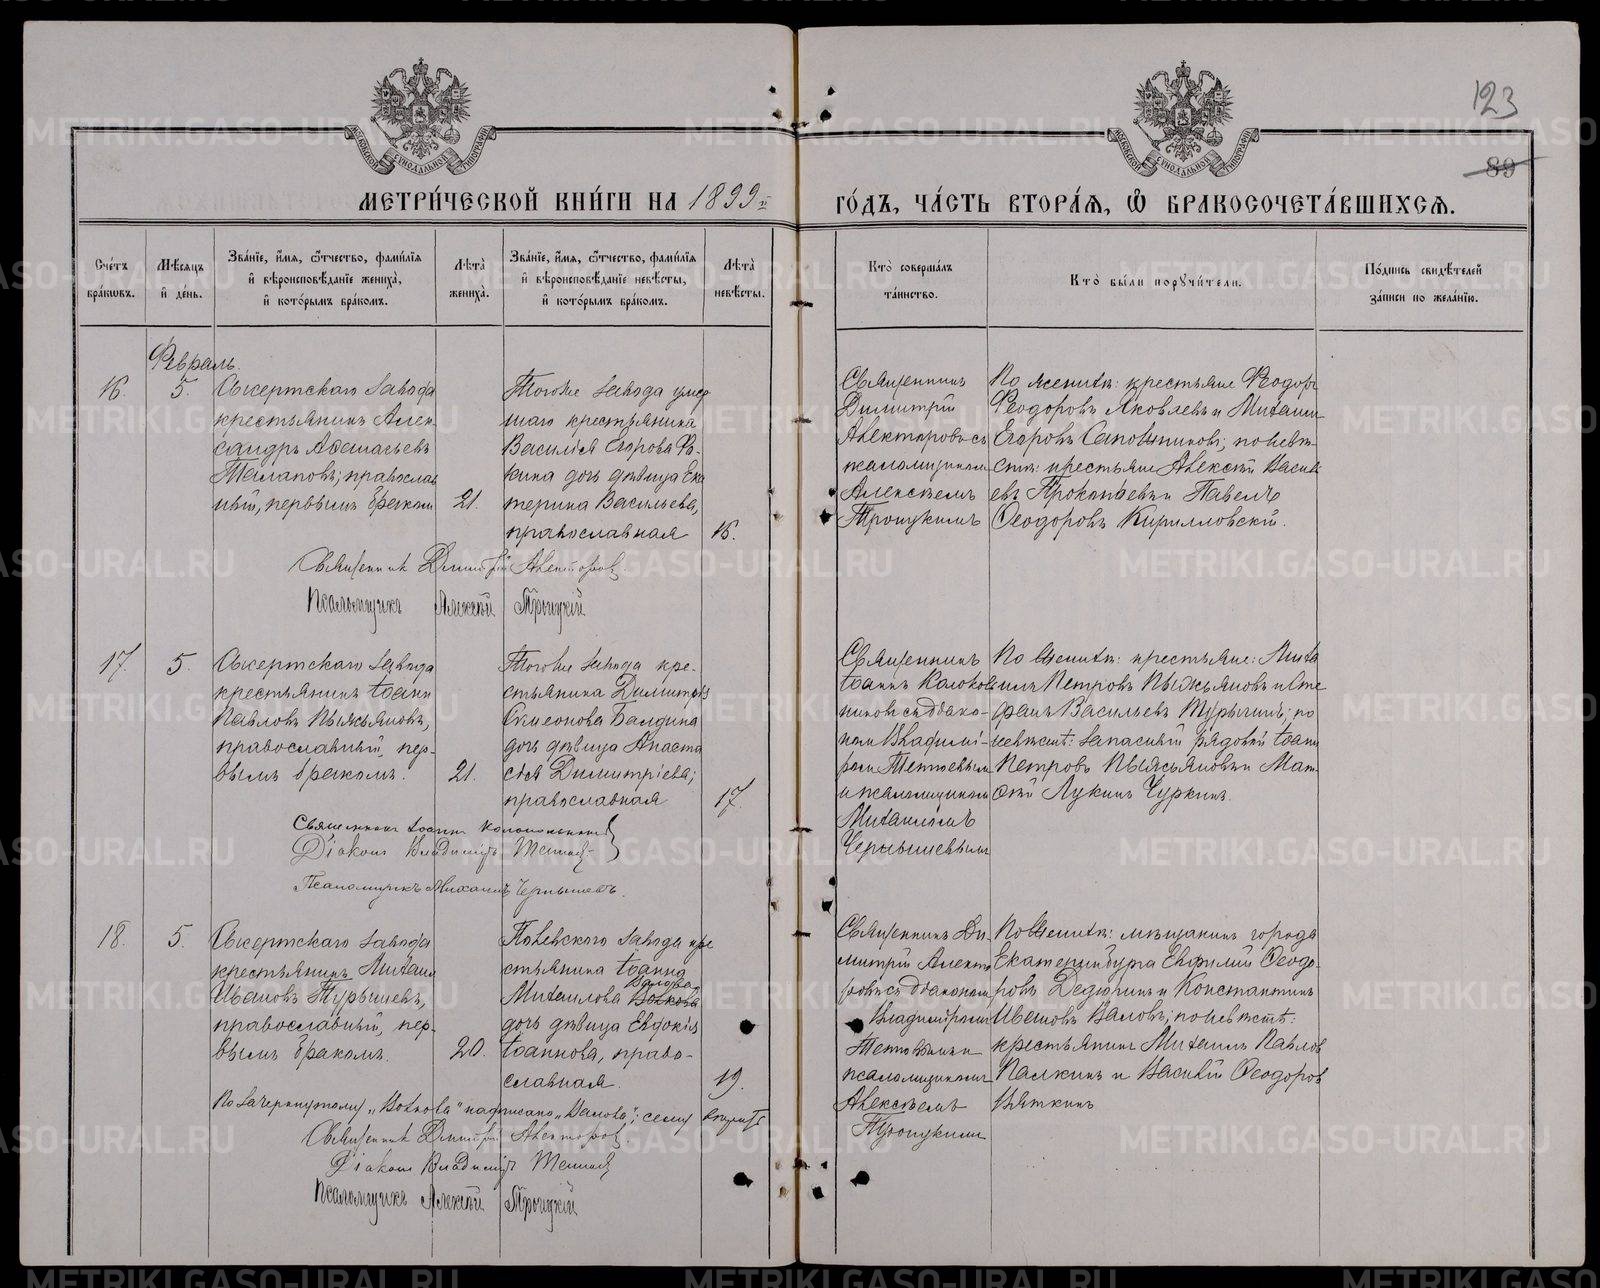 123
89
МЕТРИ́ЧЕСКОЙ КНИ́ГИ НА 1899й
ГО́ДЪ, ЧА́СТЬ ВТОРА́Я, Ѡ БРАКОСОЧЕТА́ВШИХСЯ.
Сче́тъ бра́кωвъ.
Мѣ́сяцъ и҆ де́нь.
Зва́нїе, и҆́мя, ѻ҆́тчество, фами́лїя
и҆ вѣроисповѣ́данїе жениха̀,
и҆ кото́рымъ бра́комъ.
Лѣ́та̀ жениха̀.
Зва́нїе, и҆́мя, ѻ҆́тчество, фами́лїя
и҆ вѣроисповѣ́данїе невѣ́сты,
и҆ кото́рымъ бра́комъ.
Лѣ́та̀ невѣ́сты.
Кто̀ соверша́лъ
та́инство.
Кто̀ бы́ли порꙋчи́тели.
По́дпись свидѣ́телей
за́писи по жела́нїю.
Февраль.
16.
5.
Сысертскаго завода
крестьянинъ Алек-
сандръ Аѳанасьевъ
Талановъ; православ
ный, первымъ бракомъ
21.
Тогоже завода умер
шаго крестьянина
Василія Егорова Фо-
кина дочь дѣвица Ека
терина Васильева,
православная
16.
Священникъ
Димитрій
Алекторовъ съ
псаломщикомъ
Алексѣемъ
Троицкимъ
По женихѣ: крестьяне Ѳеодоръ
Ѳеодоровъ Яковлевъ и Михаилъ
Егоровъ Сапожниковъ; по невѣ-
стѣ: крестьяне Алексѣй Василь
евъ Прокопьевъ и Павелъ
Ѳеодоровъ Кирилловскій.
Священникъ Димитрій Алекторовъ.
Псаломщикъ Алексѣй Троицкій
17.
5.
Сысертскаго завода
крестьянинъ Іоаннъ
Павловъ Пыжьяновъ,
православный, пер-
вымъ бракомъ.
21.
Тогоже завода кре-
стьянина Димитрія
Симеонова Балдина
дочь дѣвица Анаста
сія Димитріева;
православная
17.
Священникъ
Іоаннъ Колоколь
никовъ съ діако-
номъ Владимі-
ромъ Тетюевымъ
и псаломщикомъ
Михаиломъ
Чернышевымъ
По женихѣ: крестьяне: Миха
илъ Петровъ Пыжьяновъ и Сте
фанъ Васильевъ Турыгинъ; по
невѣстѣ: запасный рядовой Іоаннъ
Петровъ Пыжьяновъ и Мат-
ѳей Лукинъ Чуркинъ.
Священникъ Іоаннъ Колокольниковъ
Діаконъ Владиміръ Тетюевъ
Псаломщикъ Михаилъ Чернышевъ.
18.
5.
Сысертскаго завода
крестьянинъ Михаилъ
Ивановъ Турышевъ,
православный, пер-
вымъ бракомъ.
20.
Полевского завода кре
стьянина Іоанна
Валова
Михаилова Волкова
дочь дѣвица Евдокія
Іоаннова, право-
славная.
19.
Священникъ Ди-
митрій Алекто
ровъ съ діакономъ
Владиміромъ
Тетюевымъ и
псаломщикомъ
Алексѣемъ
Троицкимъ
По женихѣ: мѣщанинъ города
Екатеринбурга Евфимій Ѳеодо-
ровъ Дедюхинъ и Константинъ
Ивановъ Валовъ; по невѣстѣ:
крестьянинъ Михаилъ Павловъ
Палкинъ и Василій Ѳеодоровъ
Вяткинъ
По зачеркнутому „Волкова" надписано „Валова"; сему верить
Священникъ Димитрій Алекторовъ.
Діаконъ Владиміръ Тетюевъ
Псаломщикъ Алексѣй Троицкій
METRIKI.GASO-URAL.RU